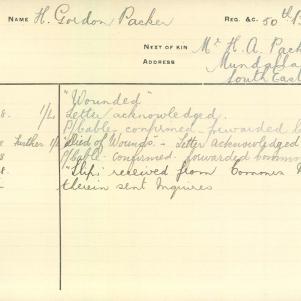 NAME H. Gordon Packer REG. &C. 50th B
NEXT OF KIN Mr H. A. Pack
ADDRESS Mundalla
South East
"Wounded"
8. 1/L Letter acknowledged.
P/bable confirmed forwarded
Further 1/L "Died of Wounds" - Letter acknowledged
8 P/bable confirmed forwarded
8. "Slip" received from Commons
therein sent Inquires